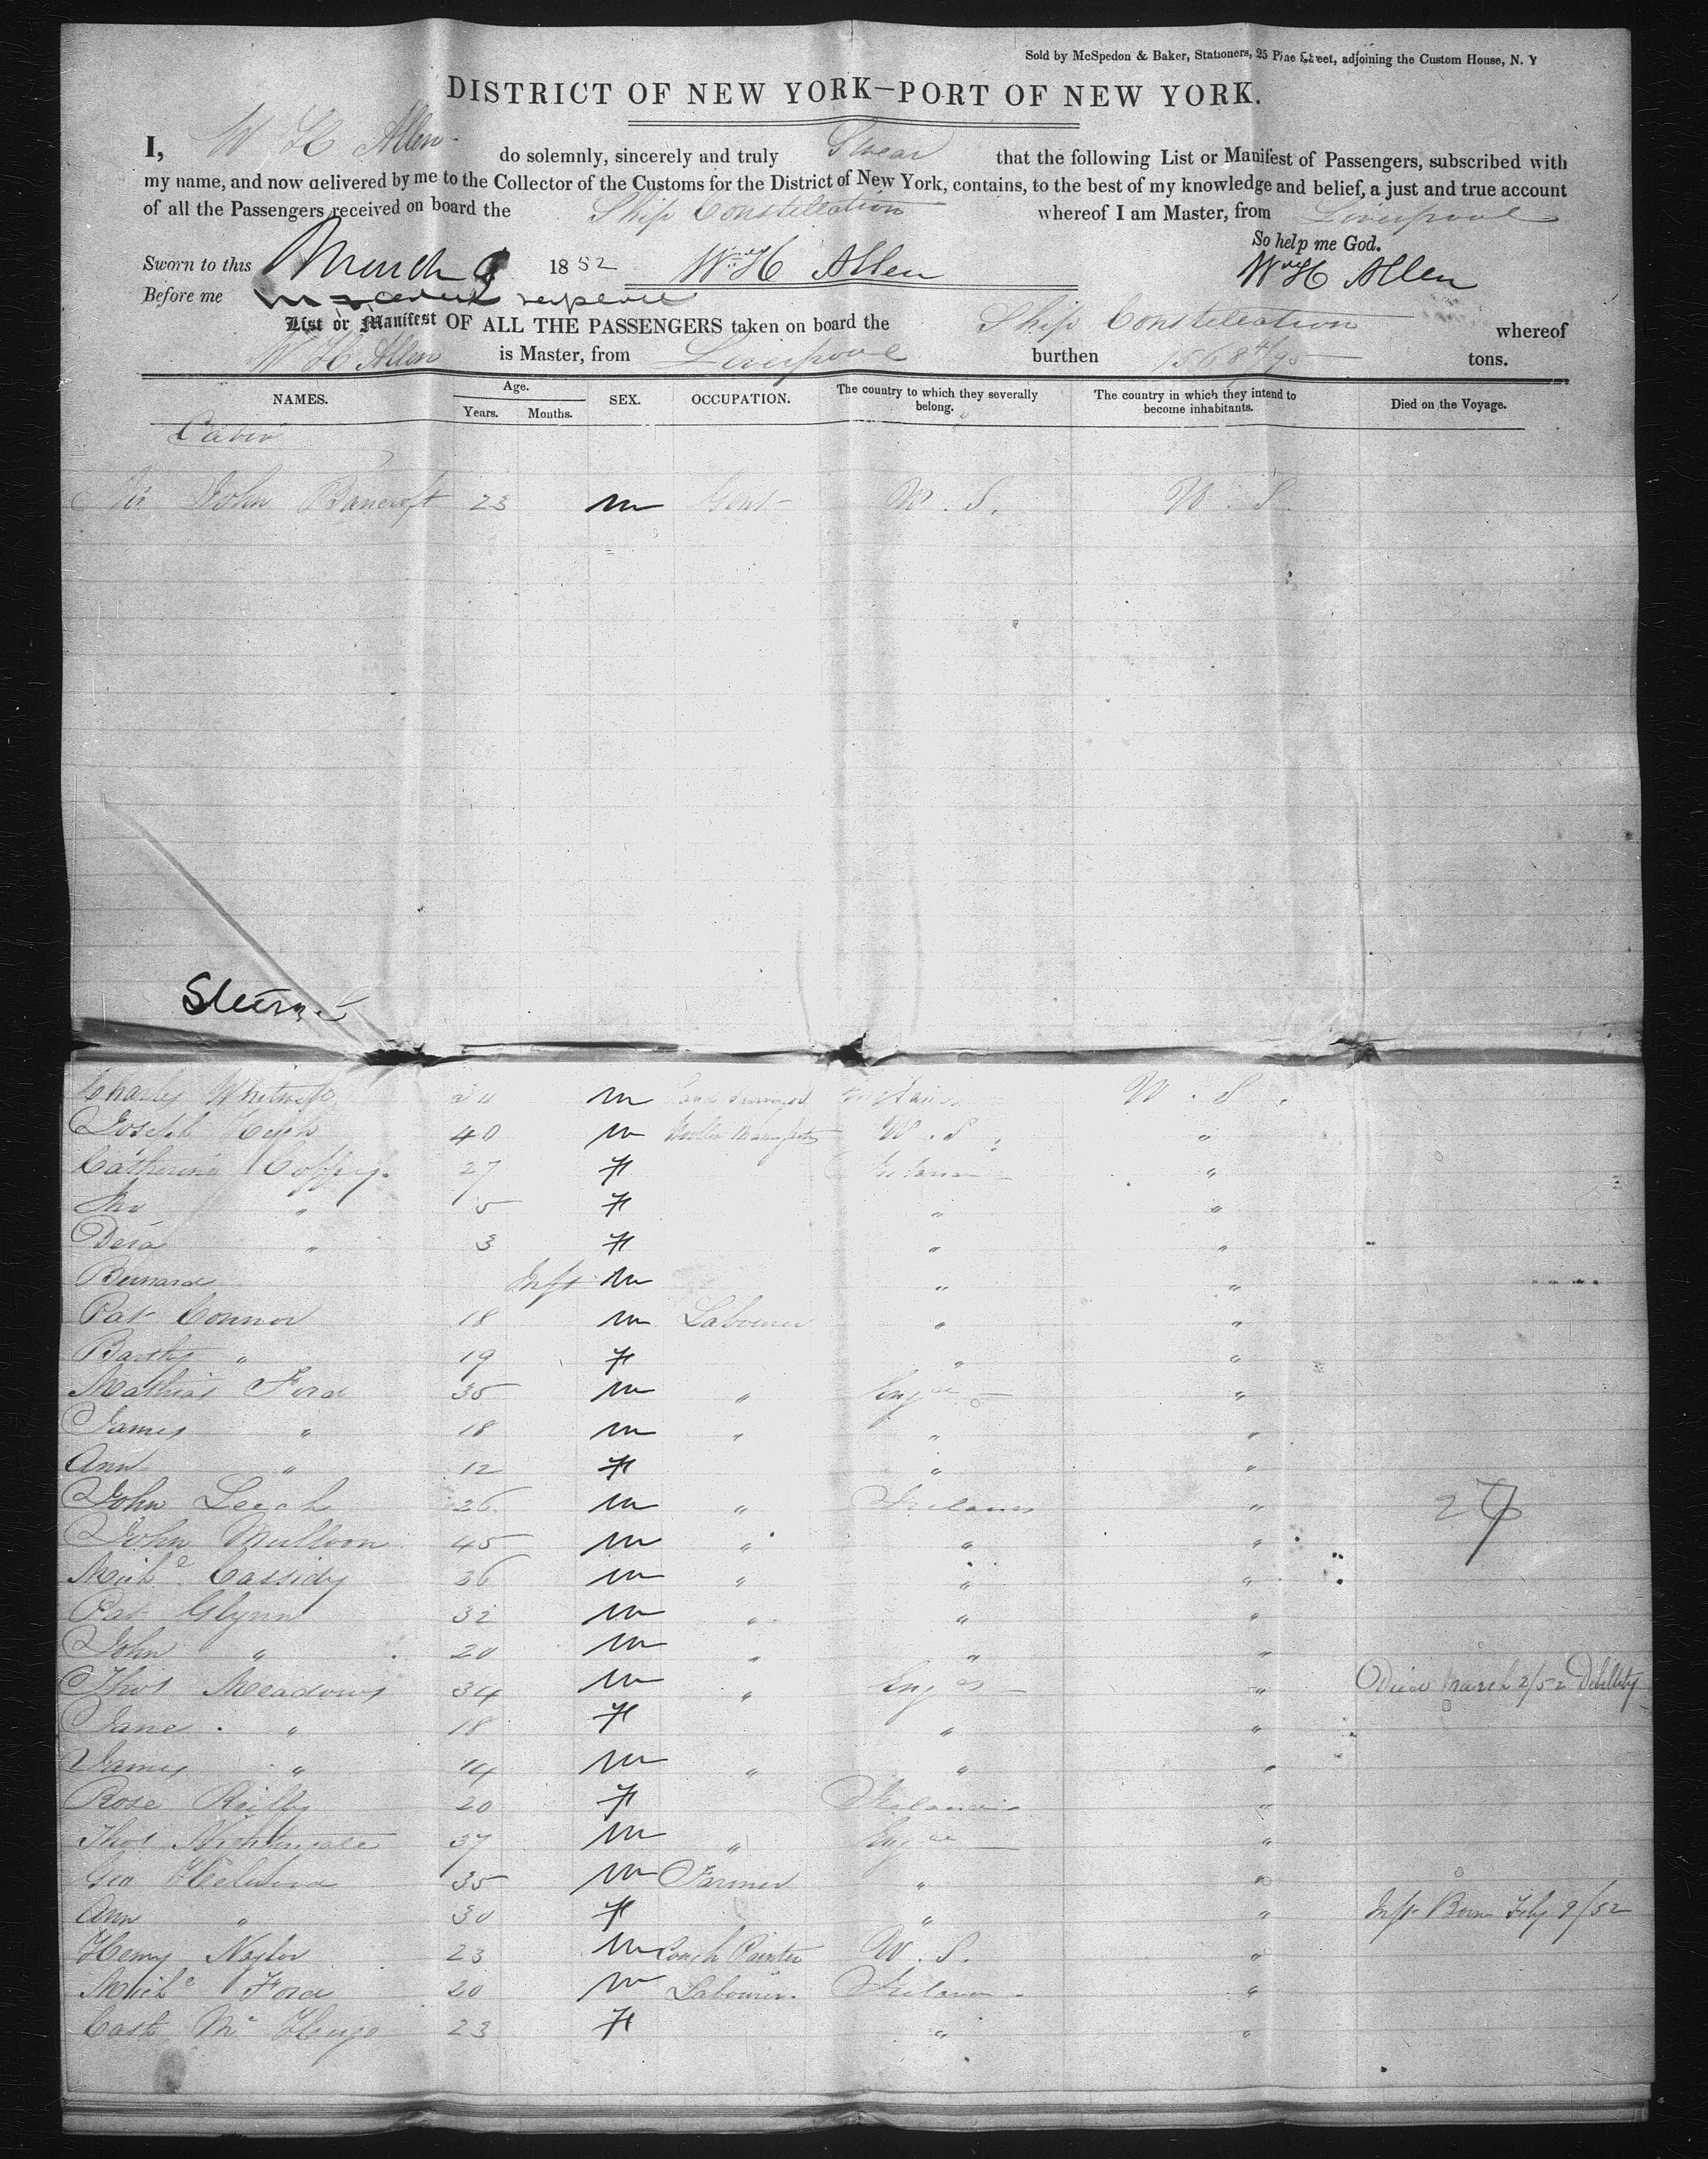 Sold by McSpedon & Baker, Stationers, 25 Pine Street, adjoining the Custom House, N. Y
DISTRICT OF NEW YORK—PORT OF NEW YORK.
I, W H Allen do solemnly, sincerely and truly Swear that the following List or Manifest of Passengers, subscribed with
my name, and now delivered by me to the Collector of the Customs for the District of New York, contains, to the best of my knowledge and belief, a just and true account
of all the Passengers received on board the Ship Constellation whereof I am Master, from Liverpool
So help me God.
Sworn to this March 9 1852 Wm H Allen Wm H Allen
Before me
List or Manifest OF ALL THE PASSENGERS taken on board the Ship Constellation whereof
W H Allen is Master, from Liverpool burthen 1568 4/95 tons.
NAMES. Age. Years. Months. SEX. OCCUPATION. The country to which they severally belong. The country in which they intend to become inhabitants. Died on the Voyage.
Cabin
Mr John Bancroft 23 m Gent U. S. U. S.
Steerage
Charles 
 m Land Surveyor U. S.
Joseph 40 m Woollen U. S. "
Catherine 27 F Ireland "
" 5 F " "
" 3 F " "
Bernard Inft m " "
Pat Connor 18 m Labourer " "
Barthy " 19 F " "
Mathias Ford 35 m " Engd "
James " 18 m " " "
Ann " 12 F " "
John Leech 26 m " Ireland "
John Mulloon 45 m " " "
Michl Cassidy 36 m " " "
Pat Glynn 32 m " " "
John " 20 m " " "
Thos Meadows 34 m " Engd " Died March 2/52 Debility
Jane " 18 F " "
James " 14 m " " "
Rose Reilly 20 F Ireland "
Thos Nightingale 37 m " Engd "
Geo 35 m Farmer " "
Ann " 30 F " " Inft Born Feby 9/52
Henry Naylor 23 m Coach Painter U. S. "
Michl Ford 20 m Labourer Ireland "
Cath Mc Hugo 23 F " "